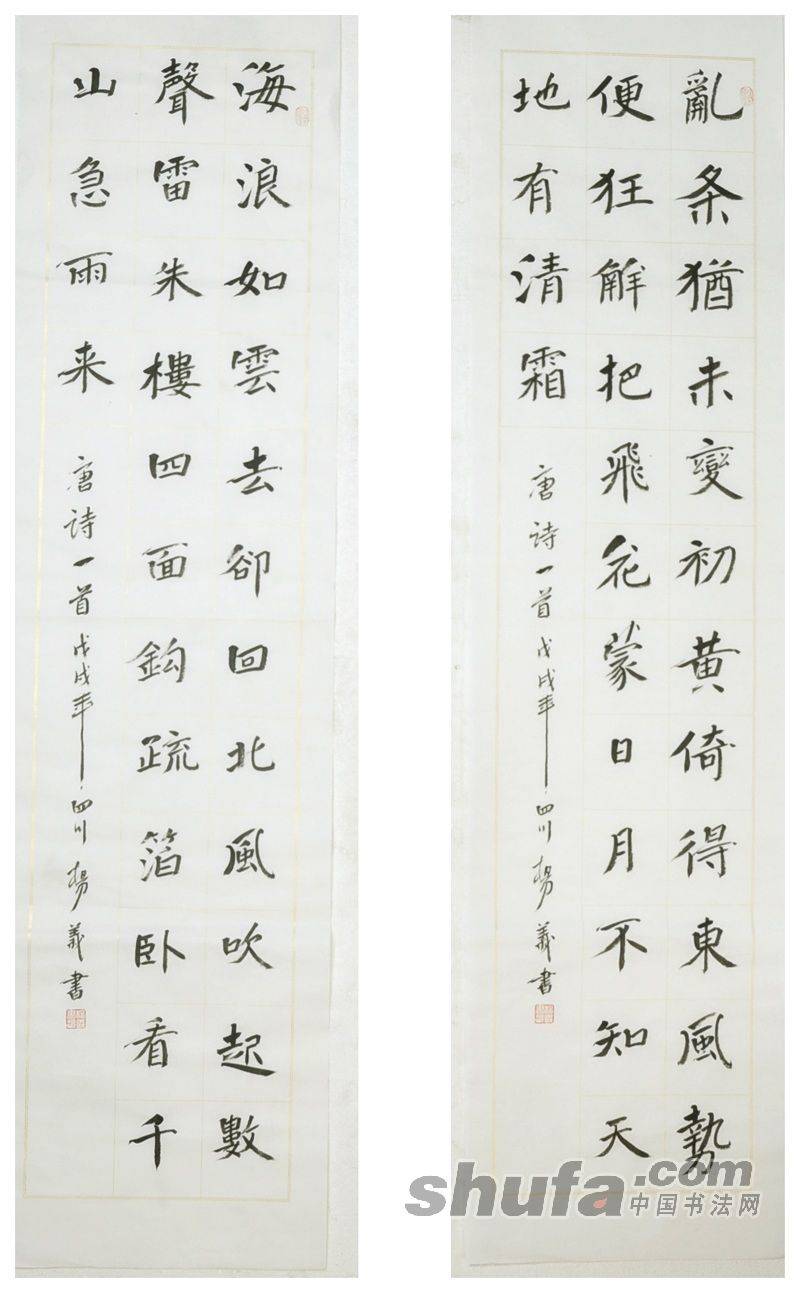 亂条猶未變初黄倚得東風勢
便狂解把飛花蒙日月不知天
地有清霜
唐诗一首戊戌年四川楊義書
海浪如雲去卻回北風吹起數
聲雷朱樓四面鈎疏箔卧看千
山急雨来
唐诗一首戊戌年四川楊義書
shufa.com
中国书法网